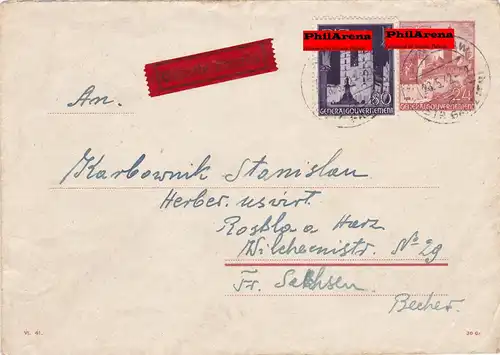 PhilArena
PhilArena
80
GENERALGOUVERNEMENT
24
GENERALGOUVERNEMENT
An.
Karbównik Stanislau
Herber usvirt
Rosbla a Harz
Wilchemistr. № 29
Fr. Sachsen
Becher.
VI. 41.
30 Gr.